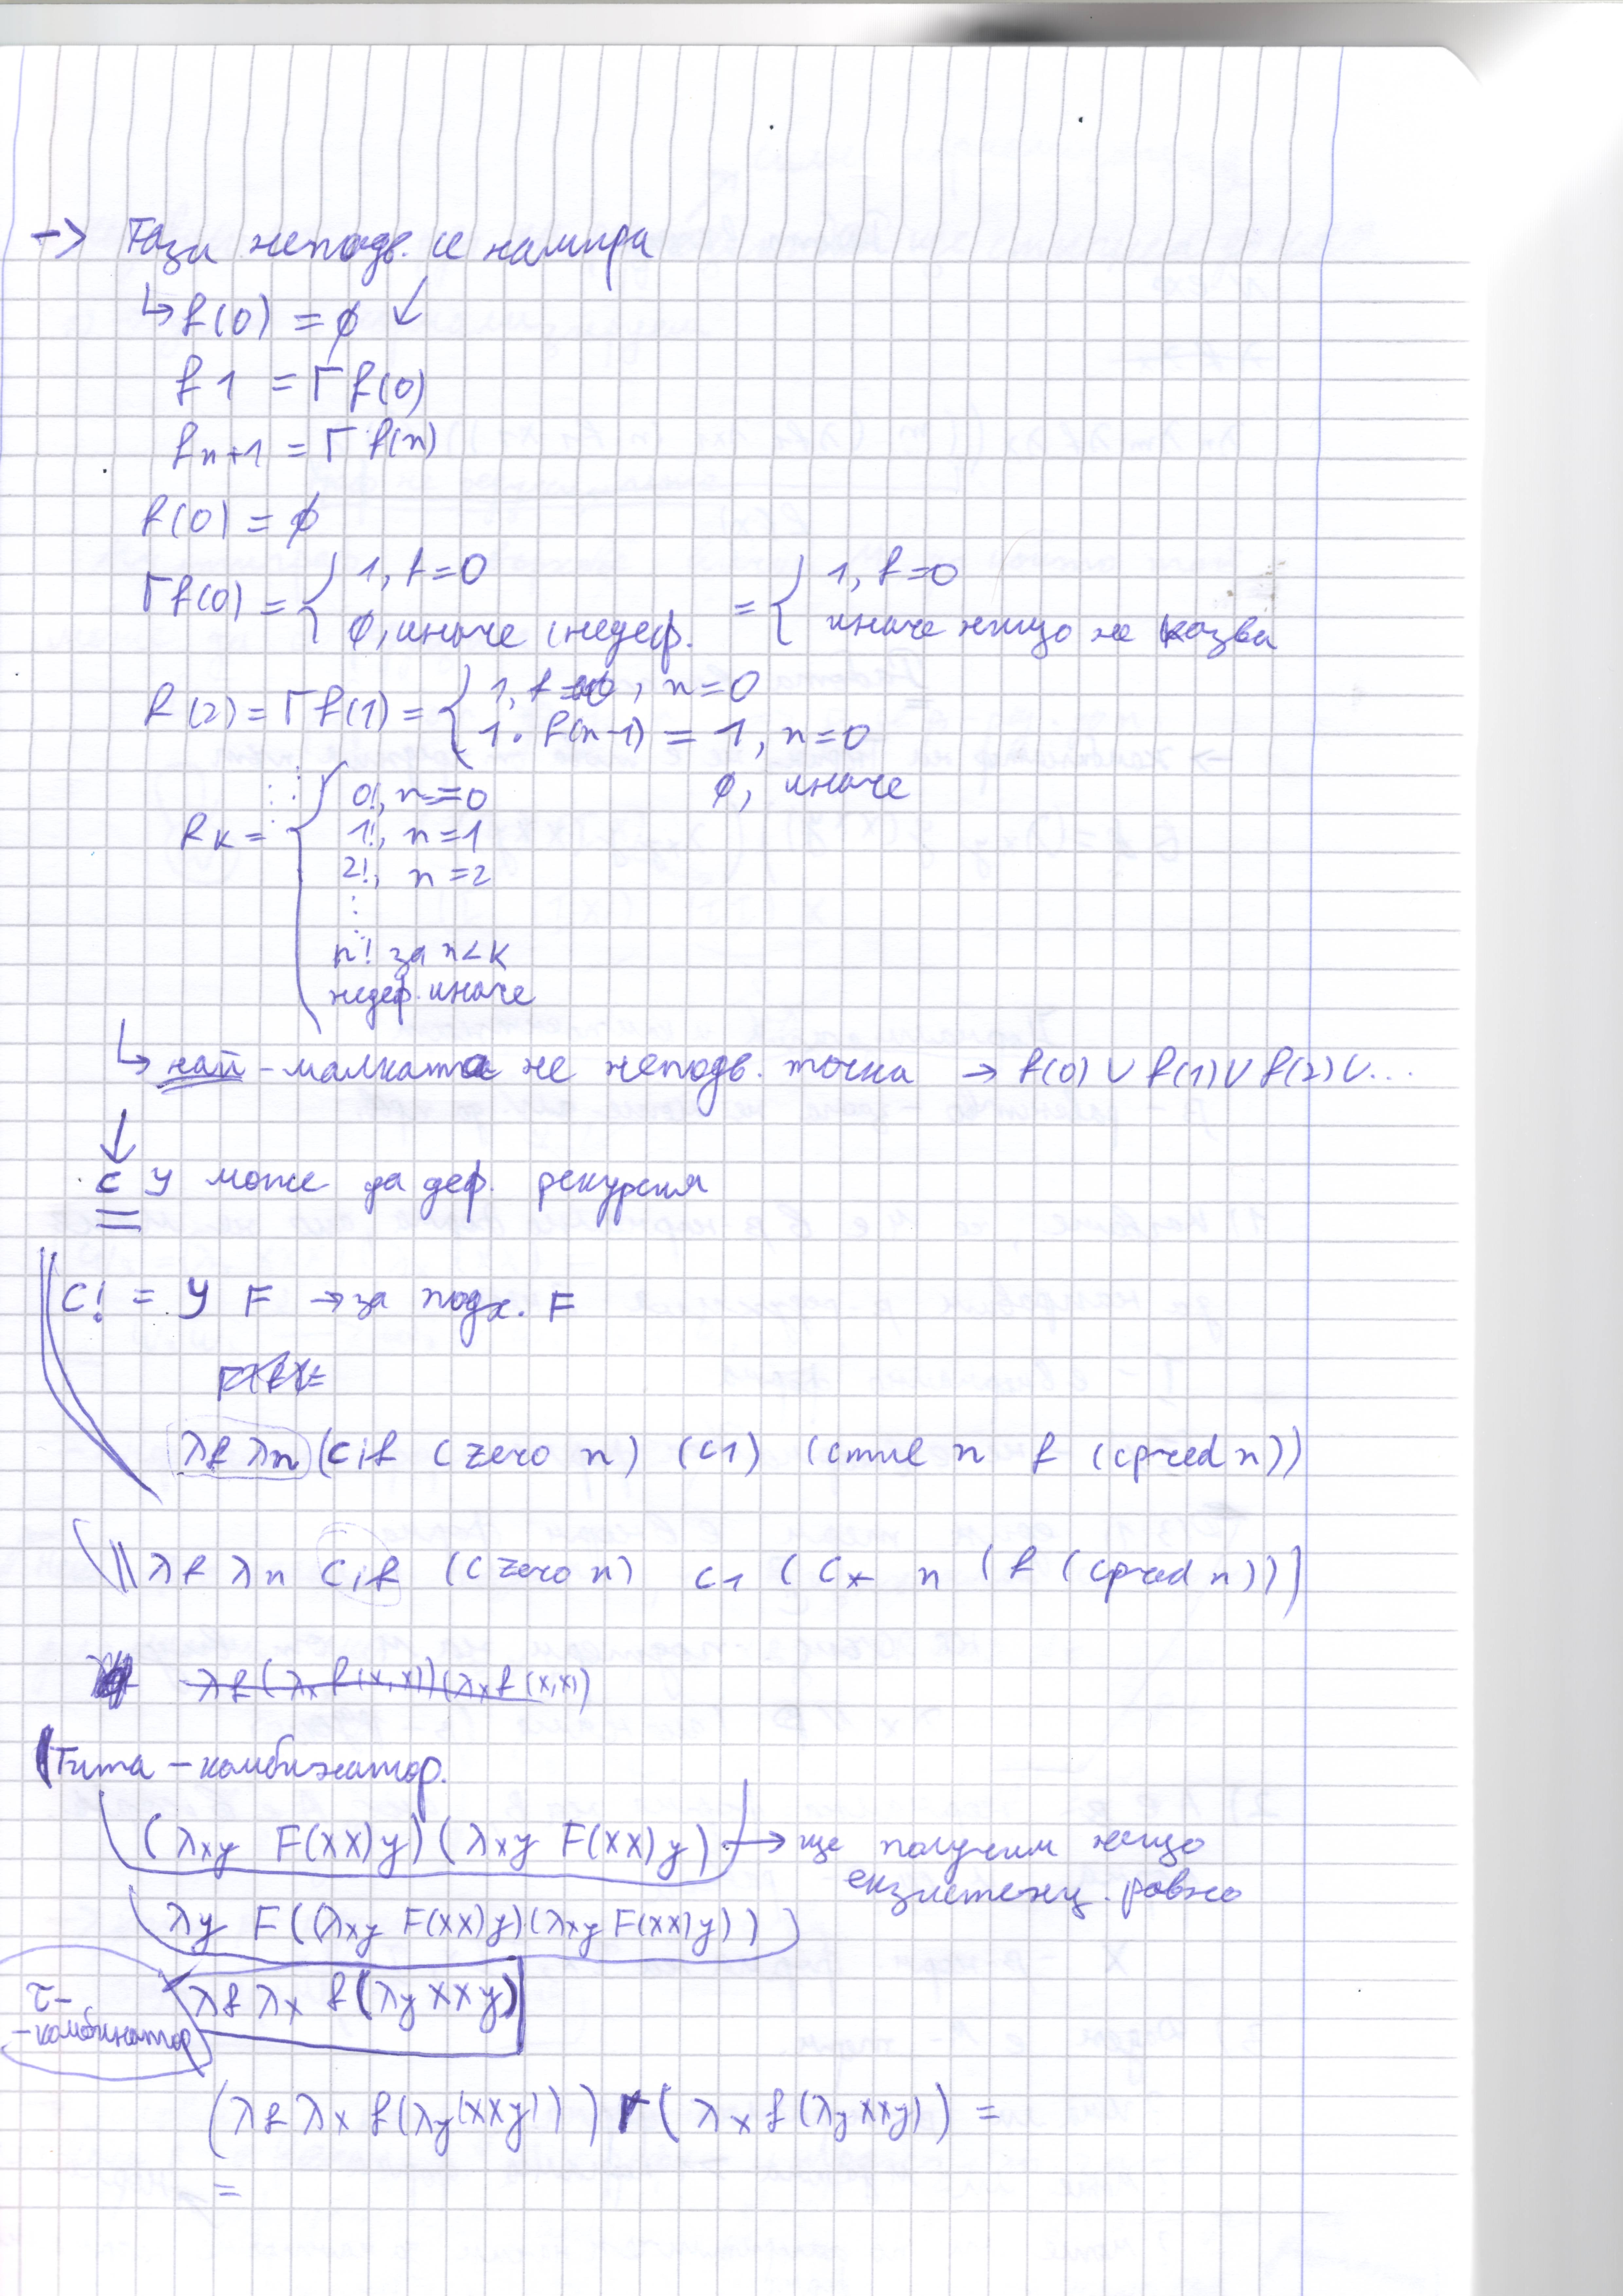 -> Тази неподв. се намира
↳ f(0) = ∅ ↓
f 1 = Γ f(0)
f n+1 = Γ f(n)
f(0) = ∅
Γf(0) = { 1, f=0 = { 1, f=0
∅, иначе (недеф. иначе нищо не казва
f(2) = Γf(1) = { 1, n=0
1 . f(n-1) = 1, n=0
∅, иначе
fk = { 0!, n=0
1!, n=1
2!, n=2
⋮
n! за n<k
недеф. иначе
↳ най-малката не неподв. точка → f(0) ∪ f(1) ∪ f(2) ∪...
↓
с У може да деф. рекурсия
c! = У F → за подх. F
λf λn (cif (c zero n) (c1) (cmul n f (cpred n))
\\ λf λn cif (c zero n) c1 (c* n (f (cpred n))]
λf (λx f(x,x)) (λx f(x,x))
Тита - комбинатор.
(λxy F(xx)y) (λxy F(xx)y) → ще получим нещо
екзистенц. равно
λy F((λxy F(xx)y)(λxy F(xx)y))
λf λx f(λy xxy)
τ-
-комбинатор
(λf λx f(λy(xxy))) Γ (λx f(λy xxy)) =
=